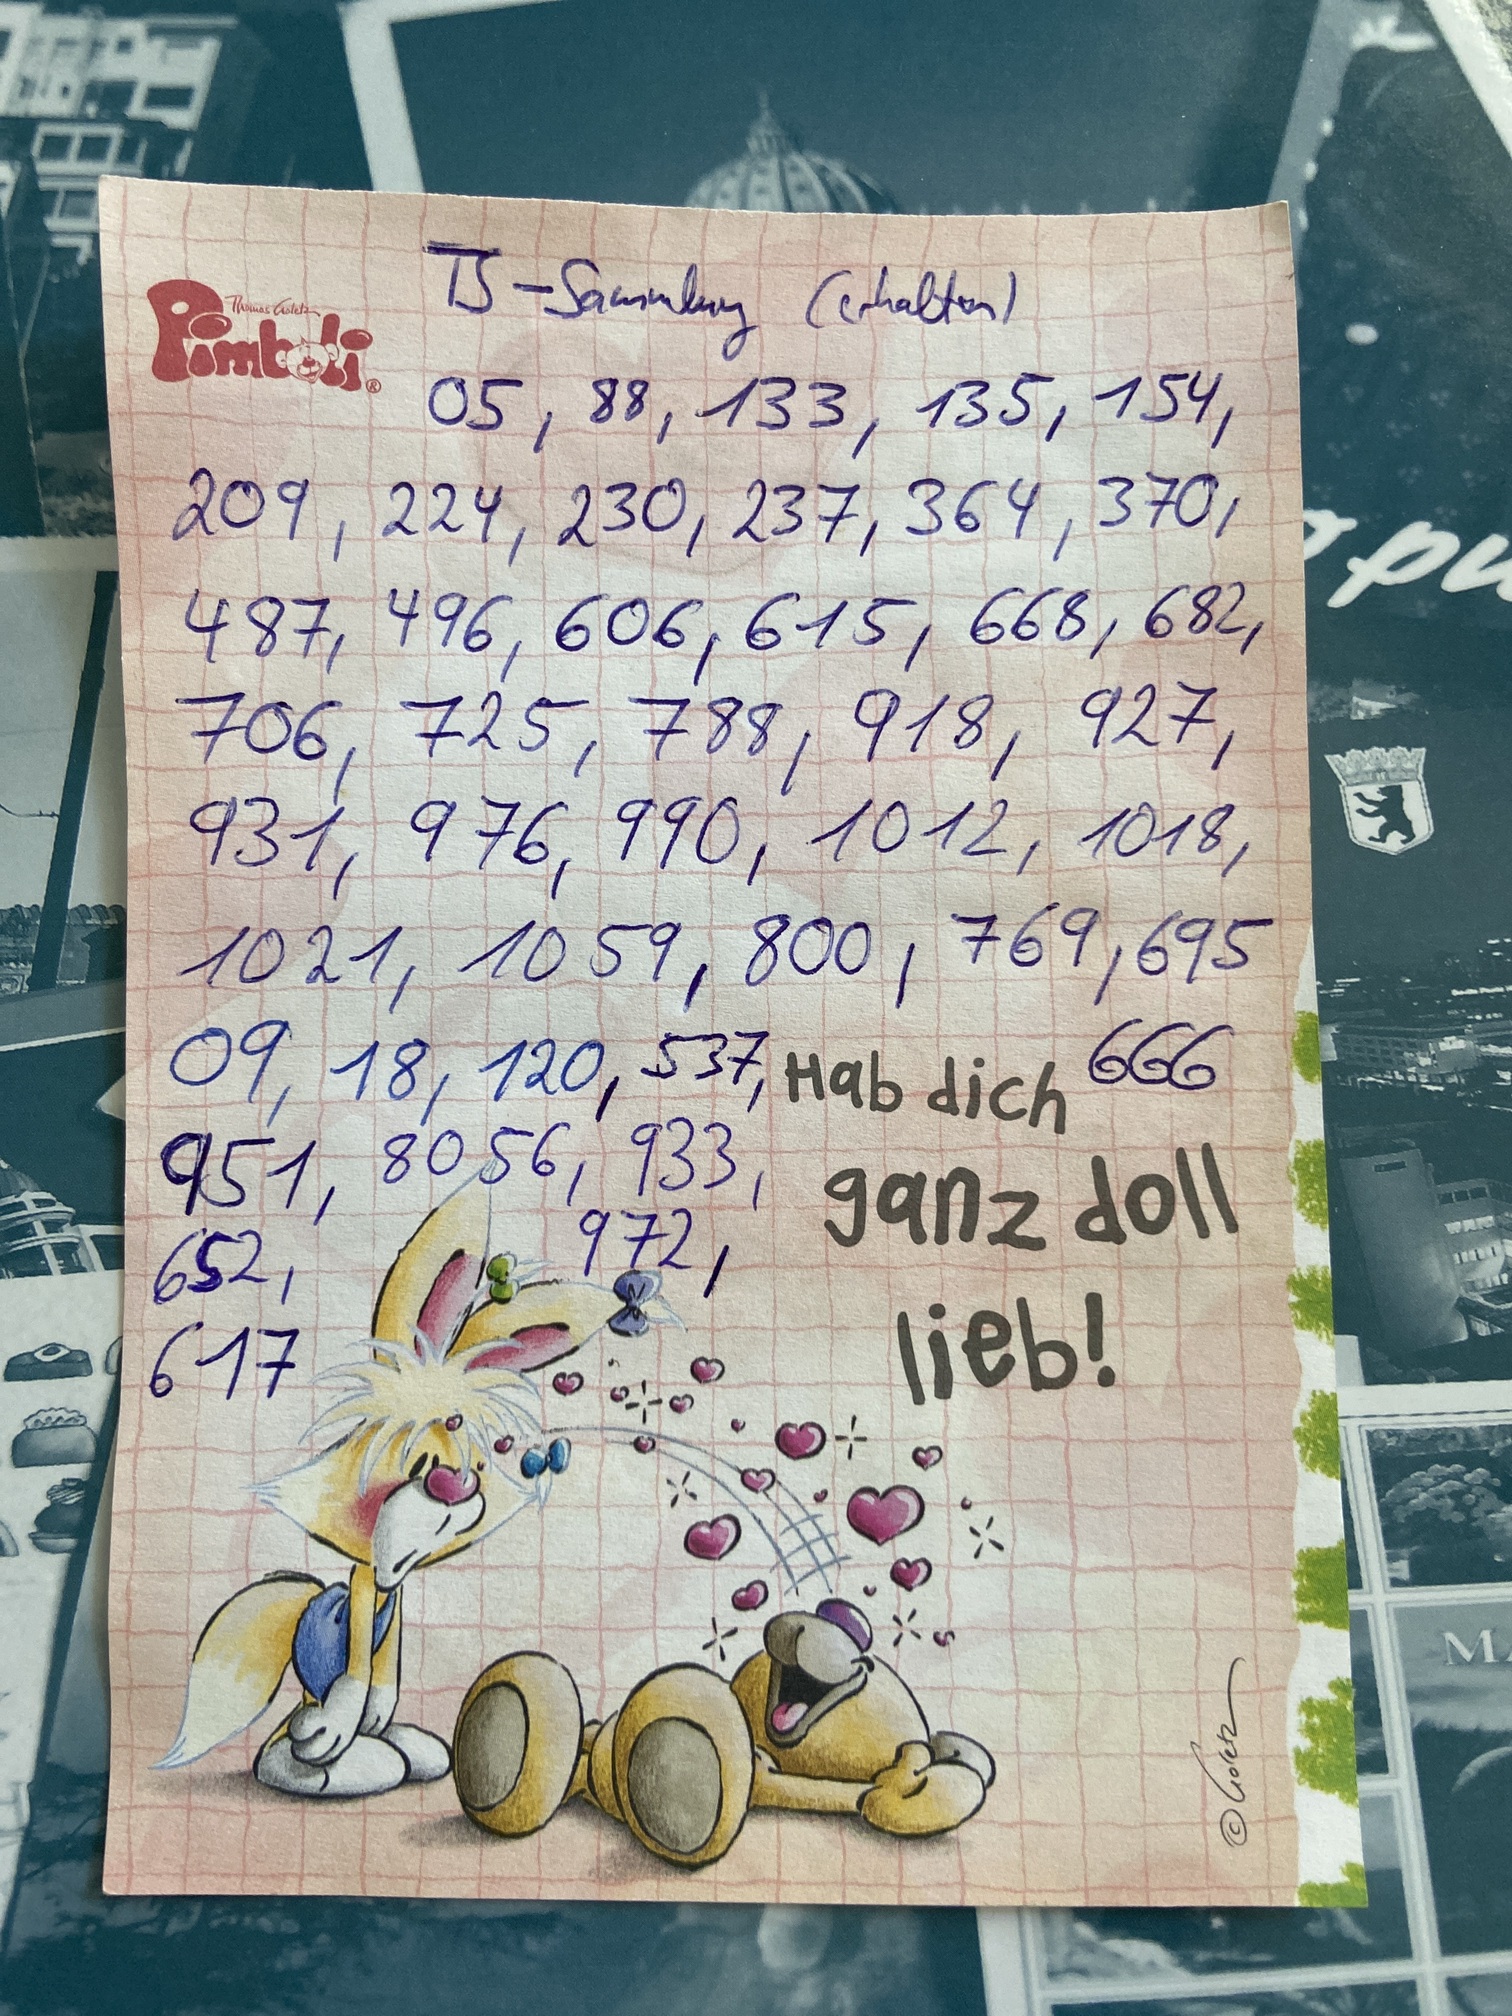 TS-Sammlung (erhalten)
Thomas Goletz
Pimboli®
05, 88, 133, 135, 154,
209, 224, 230, 237, 364, 370,
487, 496, 606, 615, 668, 682,
706, 725, 788, 918, 927,
931, 976, 990, 1012, 1018,
1021, 1059, 800, 769, 695
09, 18, 120, 537, 666
951, 8056, 933,
652, 972,
617
Hab dich
ganz doll
lieb!
© Goletz